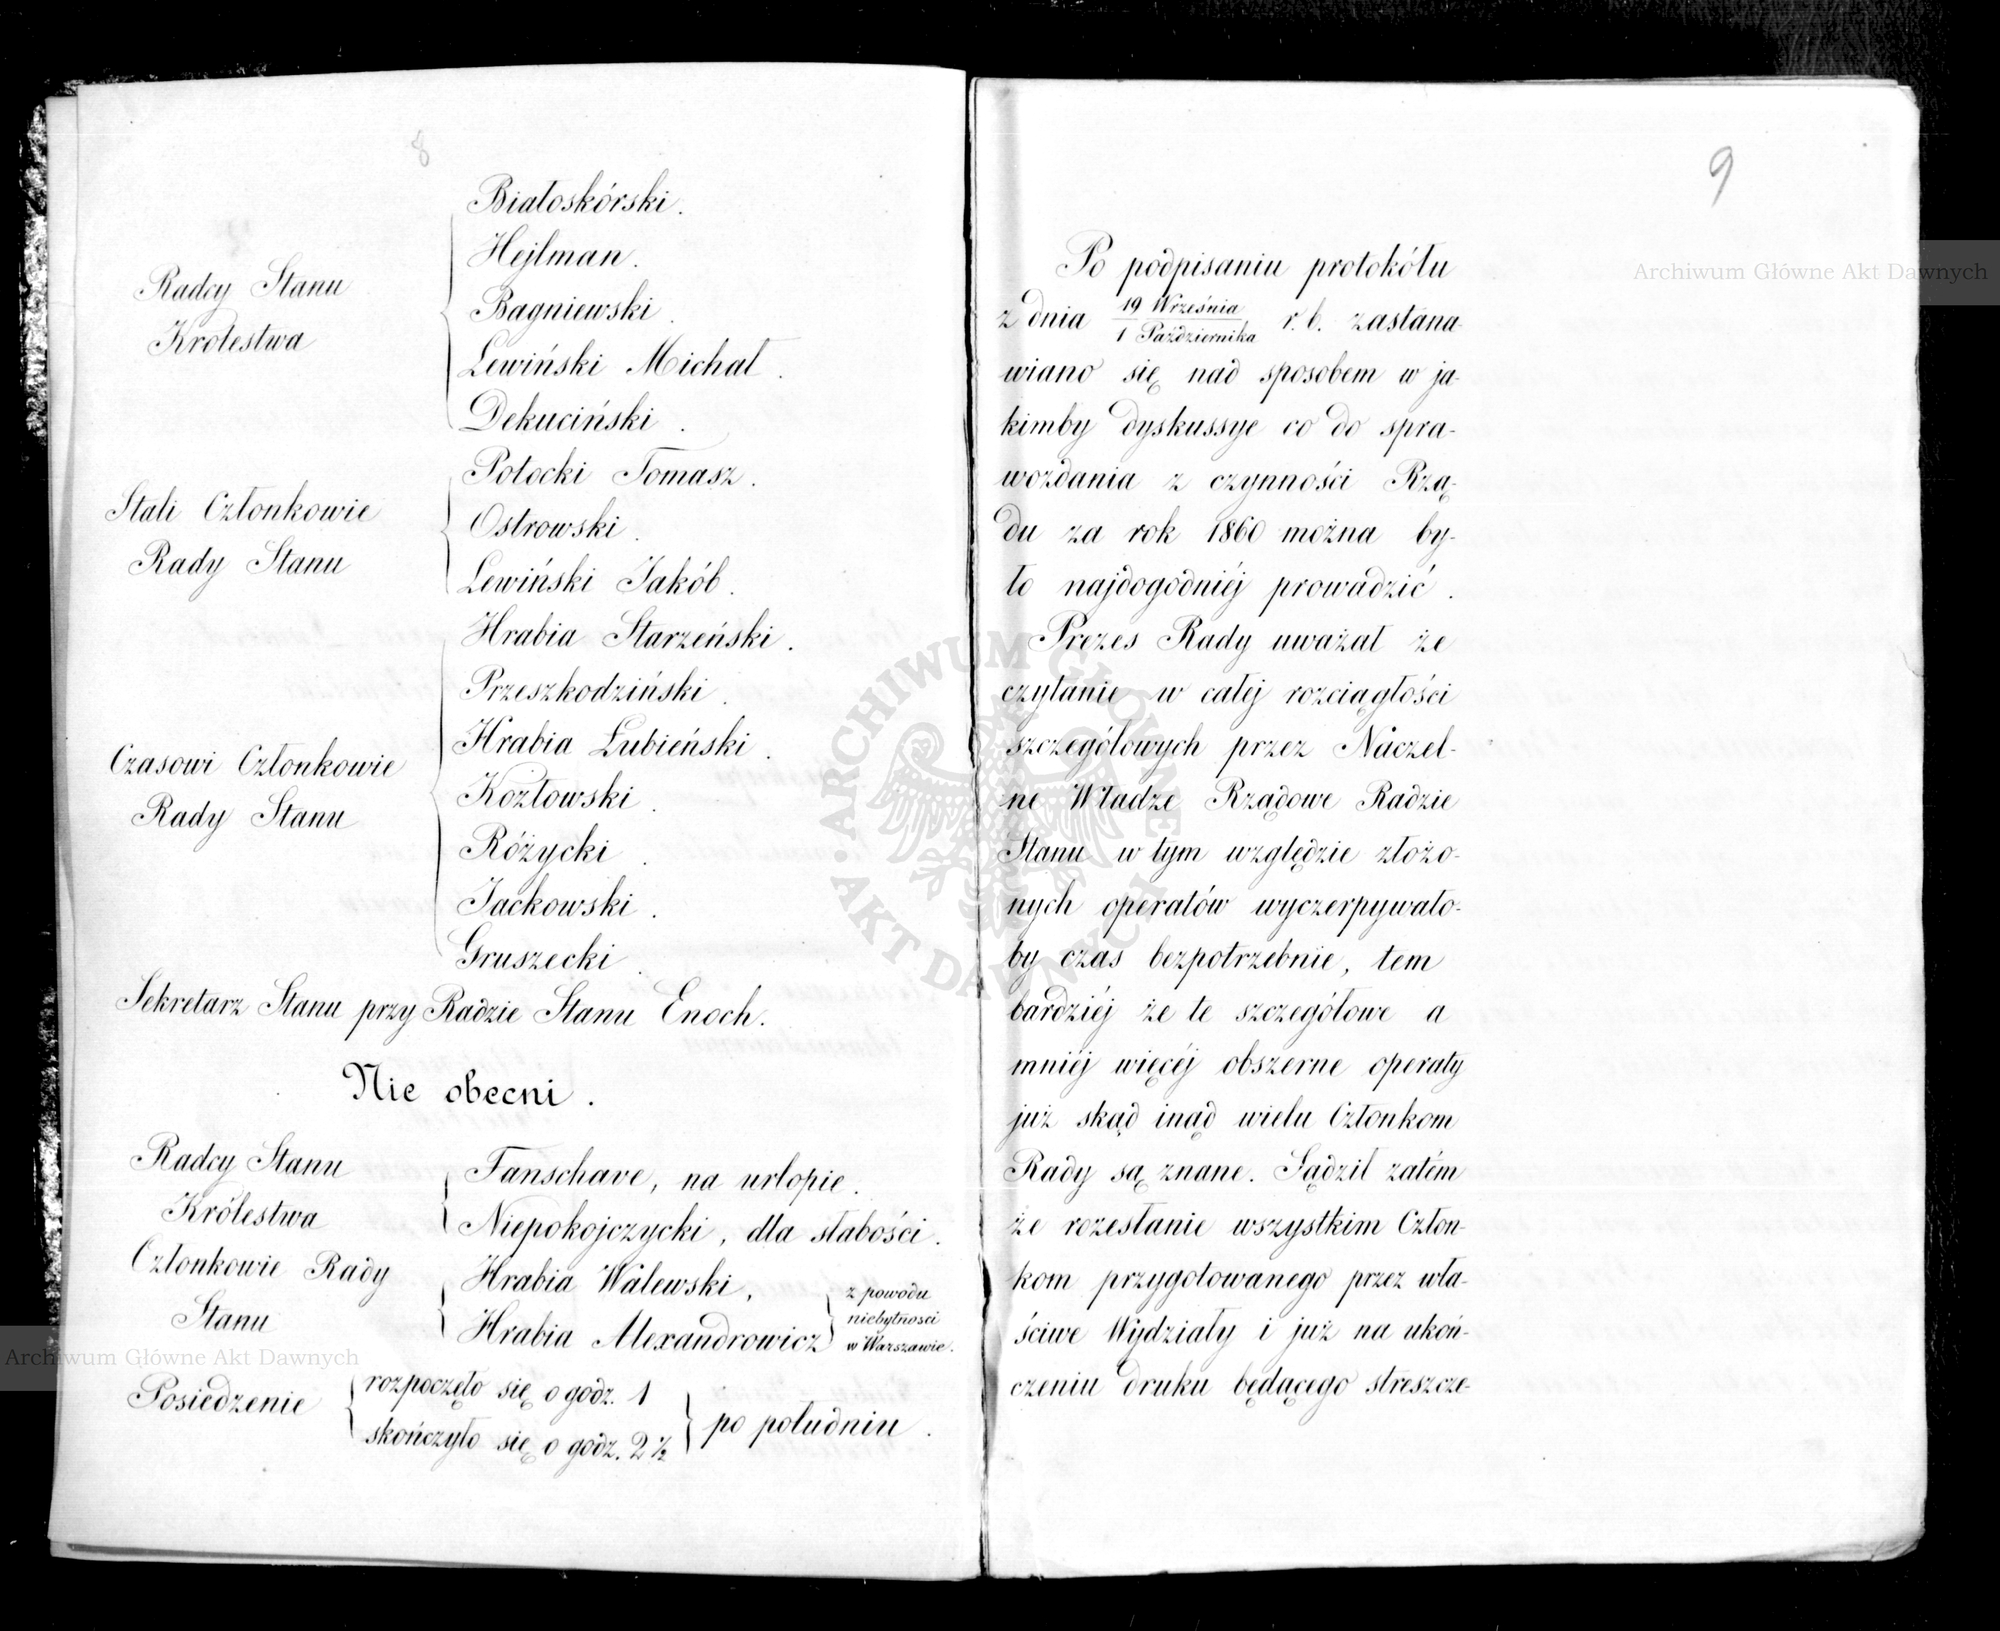 8
Radcy Stanu
Królestwa
Białoskórski.
Hejlman.
Bagniewski.
Lewiński Michał.
Dekuciński.
Stali Członkowie
Rady Stanu
Potocki Tomasz.
Ostrowski.
Lewiński Jakób.
Czasowi Członkowie
Rady Stanu
Hrabia Starzeński.
Przeszkodziński.
Hrabia Lubieński.
Kozłowski.
Różycki.
Jackowski.
Gruszecki.
Sekretarz Stanu przy Radzie Stanu Enoch.
Nie obecni.
Radcy Stanu
Królestwa
Fanschave, na urlopie.
Niepokojczycki, dla słabości.
Członkowie Rady
Stanu
Hrabia Walewski,
Hrabia Alexandrowicz
z powodu
niebytności
w Warszawie.
Posiedzenie
rozpoczęło się o godz. 1
skończyło się o godz. 2 ½
po południu.
9
Po podpisaniu protokółu
z dnia 19 Września / 1 Października r. b. zastana-
wiano się nad sposobem w ja-
kimby dyskussye co do spra-
wozdania z czynności Rzą-
du za rok 1860 można by-
ło najdogodniéj prowadzić.
Prezes Rady uważał że
czytanie w całej rozciągłości
szczegółowych przez Naczel-
ne Władze Rządowe Radzie
Stanu w tym względzie złożo-
nych operatów wyczerpywało-
by czas bezpotrzebnie, tem
bardziéj że te szczegółowe a
mniéj więcéj obszerne operaty
już skąd inąd wielu Członkom
Rady są znane. Sądził zatém
że rozesłanie wszystkim Człon-
kom przygotowanego przez wła-
ściwe Wydziały i już na ukoń-
czeniu druku będącego streszcze-
Archiwum Główne Akt Dawnych
Archiwum Główne Akt Dawnych
ARCHIWUM GŁÓWNE AKT DAWNYCH